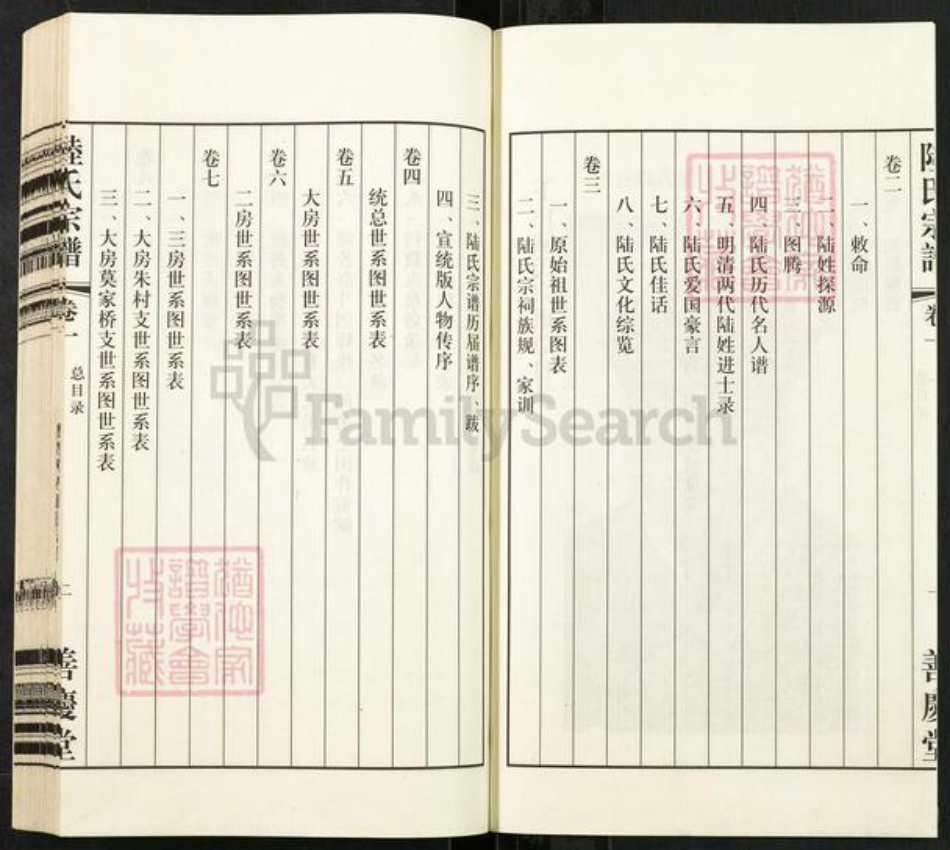 陆氏宗谱 卷一
善慶堂
卷二
一、敕命
二、陆姓探源
三、图腾
四、陆氏历代名人谱
五、明清两代陆姓进士录
六、陆氏爱国豪言
七、陆氏佳话
八、陆氏文化综览
卷三
一、原始祖世系图表
二、陆氏宗祠族规、家训
三、陆氏宗谱历届谱序、跋
四、宣统版人物传序
卷四
统总世系图世系表
卷五
大房世系图世系表
卷六
二房世系图世系表
卷七
一、三房世系图世系表
二、大房朱村支世系图世系表
三、大房莫家桥支世系图世系表
陸氏宗譜 卷一 总目录 二 善慶堂
FamilySearch
猶他家譜學會收藏